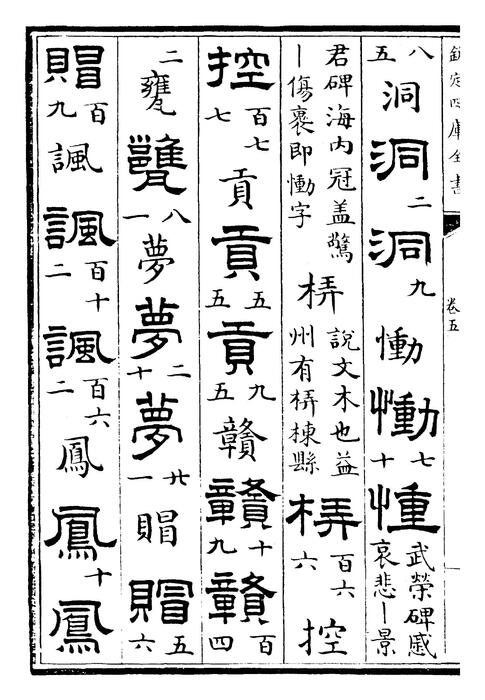 欽定四庫全書 卷五
八五 洞 洞 二 洞 九 慟 慟 七十 憧 武榮碑慼哀悲丨景
君碑海内冠盖驚丨傷褱即慟字 梇 說文木也益州有梇棟縣 梇 百六六 控
控 百七七 貢 貢 五五 貢 九五 贛 贛 十九 贛 百四
二 甕 甕 八一 夢 夢 二十 夢 廿一 賵 賵 五六
賵 百九 諷 諷 百十二 諷 百六二 鳳 鳳 十 鳳